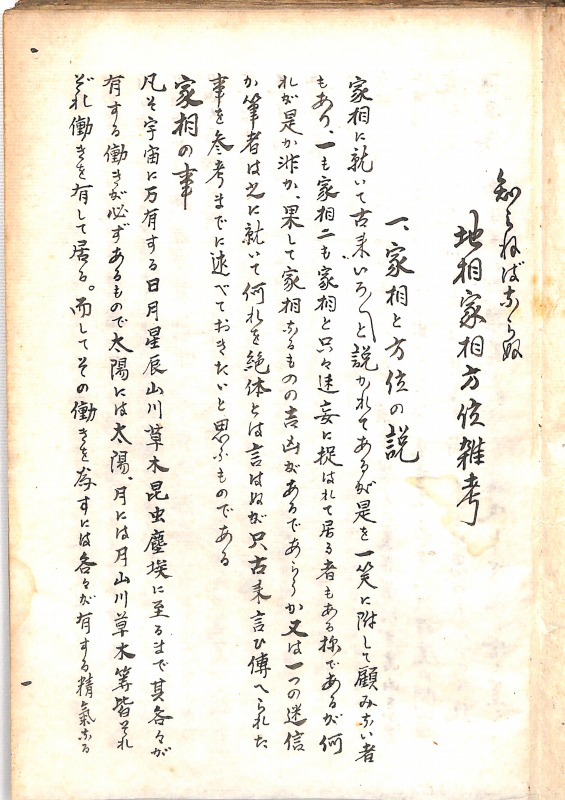 知らねばならぬ
地相家相方位雑考
一、家相と方位の説
家相に就いて古来いろ〱と説かれてあるが是を一笑に附して顧みない者
もあり、一も家相二も家相と只々迷妄に捉はれて居る者もある様であるが何
れが是か非か、果して家相なるものの吉凶があるであらうか又は一つの迷信
か筆者は之に就いて何れを絶体とは言はぬが只古来言ひ傳へられた
事を参考までに述べておきたいと思ふものである
家相の事
凡そ宇宙に万有する日月星辰山川草木昆虫塵埃に至るまで其各々が
有する働きが必ずあるもので太陽には太陽、月には月山川草木等皆それ
ぞれ働きを有して居る。而してその働きを為すには各々が有する精氣なる